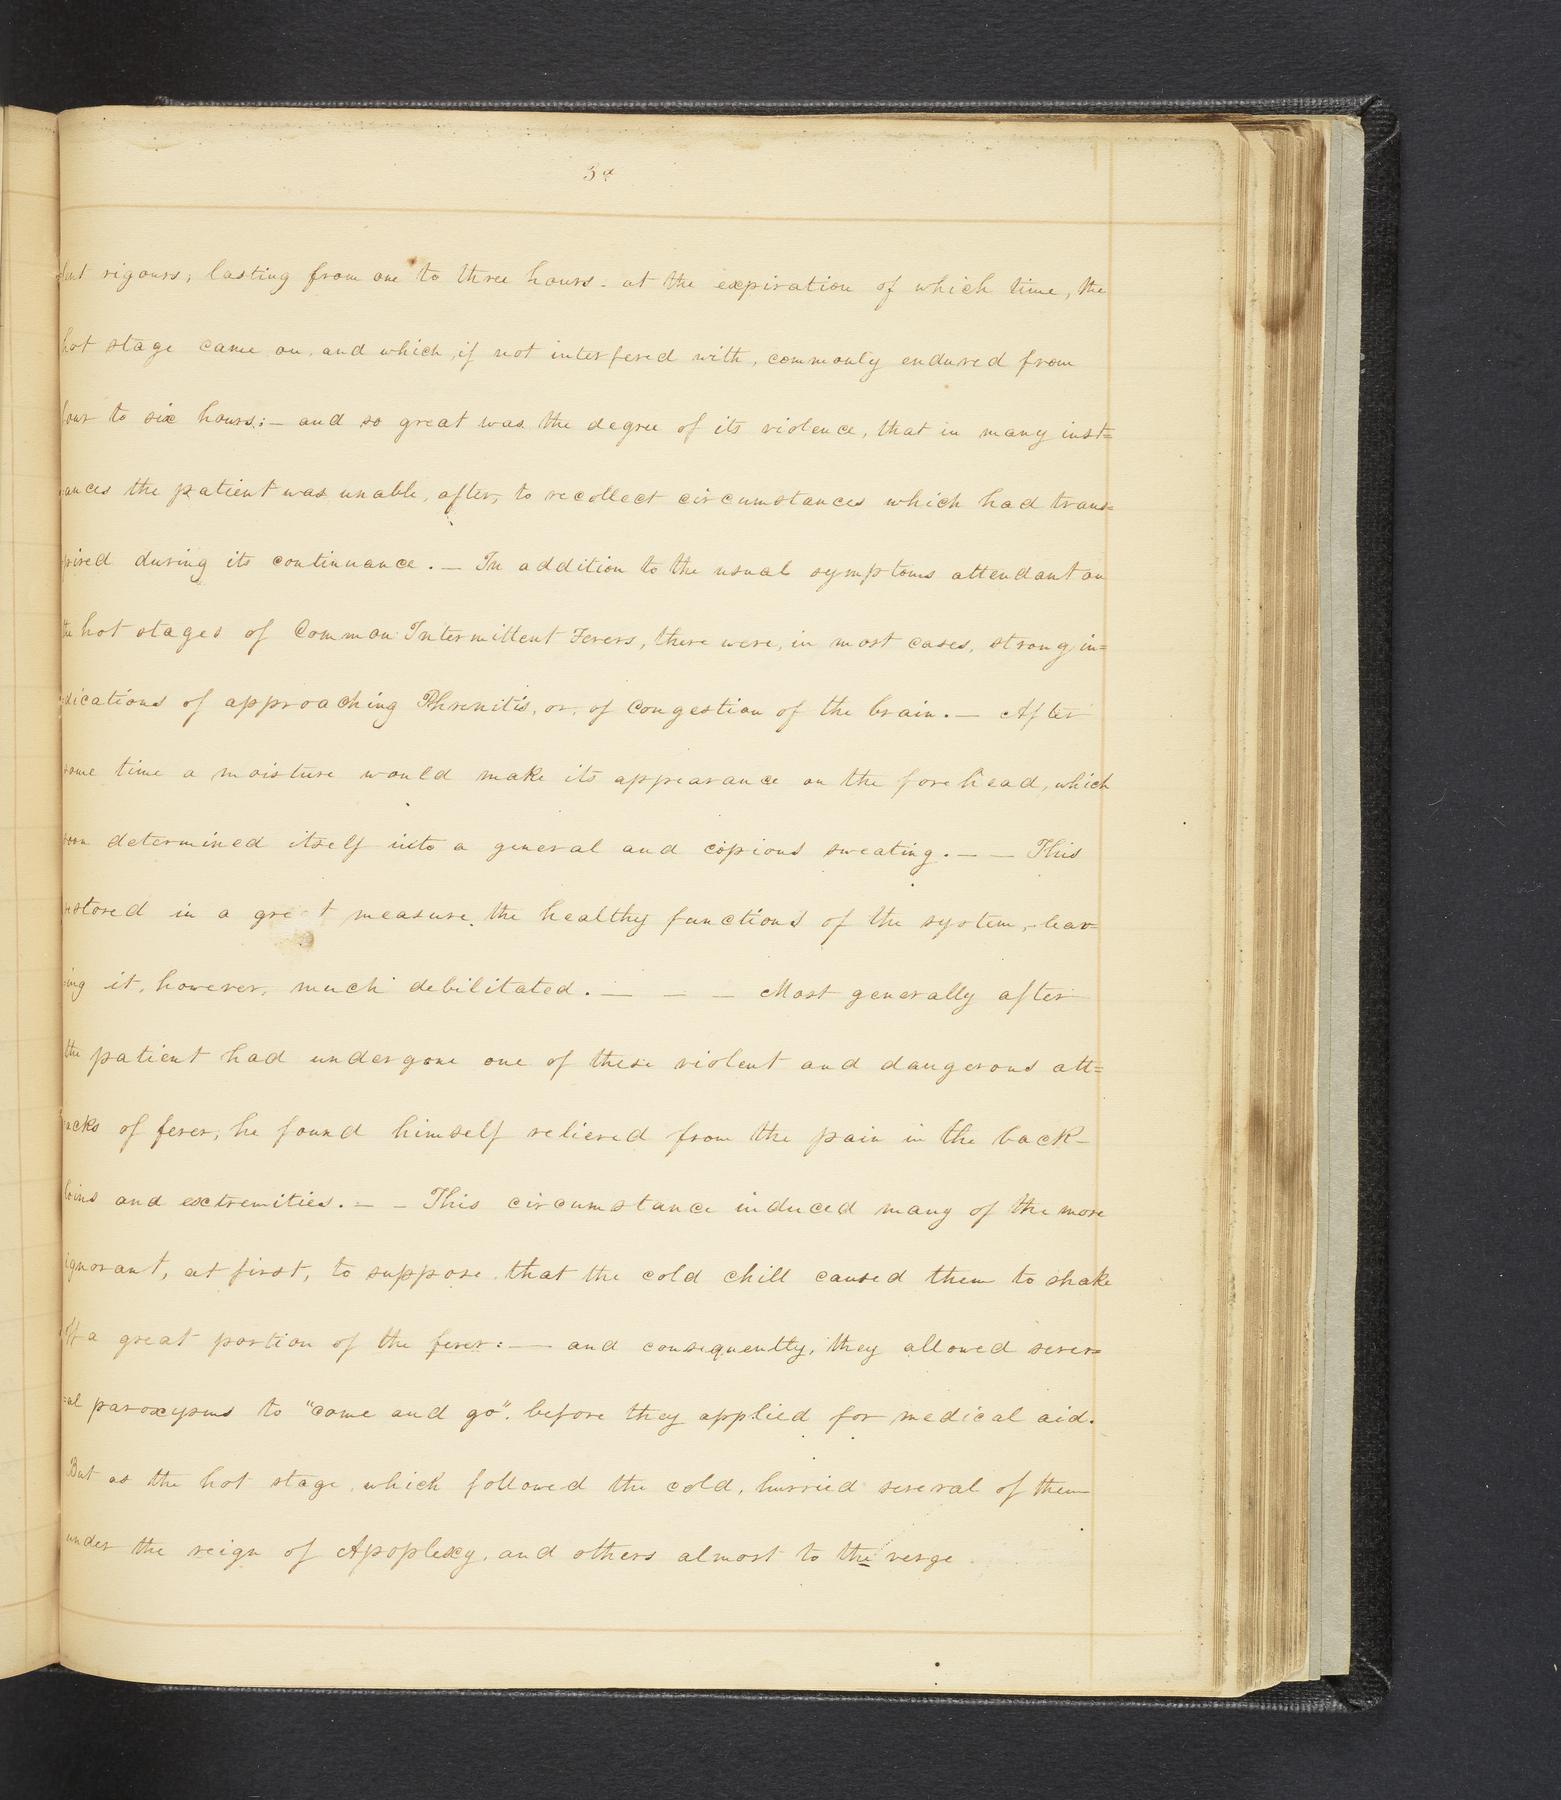 3d
lent rigours; lasting from one to three hours - at the expiration of which time, the
hot stage came on, and which, if not interfered with, commonly endured from
four to six hours:— and so great was the degree of its violence, that in many inst=
ances the patient was unable, after, to recollect circumstances which had trans=
pired during its continuance. — In addition to the usual symptoms attendant on
the hot stages of Common Intermittent Fevers, there were, in most cases, strong in=
dications of approaching Phrenitis, or, of congestion of the brain. — After
some time a moisture would make its appearance on the forehead, which
soon determined itself into a general and copious sweating. — — This
restored in a great measure, the healthy functions of the system, - leav
ing it, however, much debilitated. — — — Most generally after
the patient had undergone one of these violent and dangerous att=
acks of fever, he found himself relieved from the pain in the back -
loins and extremities. — — This circumstance induced many of the more
ignorant, at first, to suppose that the cold chill caused them to shake
off a great portion of the fever: — and consequently, they allowed sever=
=al paroxysms to "come and go", before they applied for medical aid.
But as the hot stage, which followed the cold, hurried several of them
under the reign of Apoplexy, and others almost to the verge